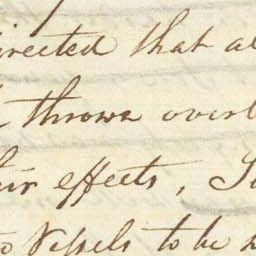 irected that al
thrown overb
eir effects, Su
o Vessels to be